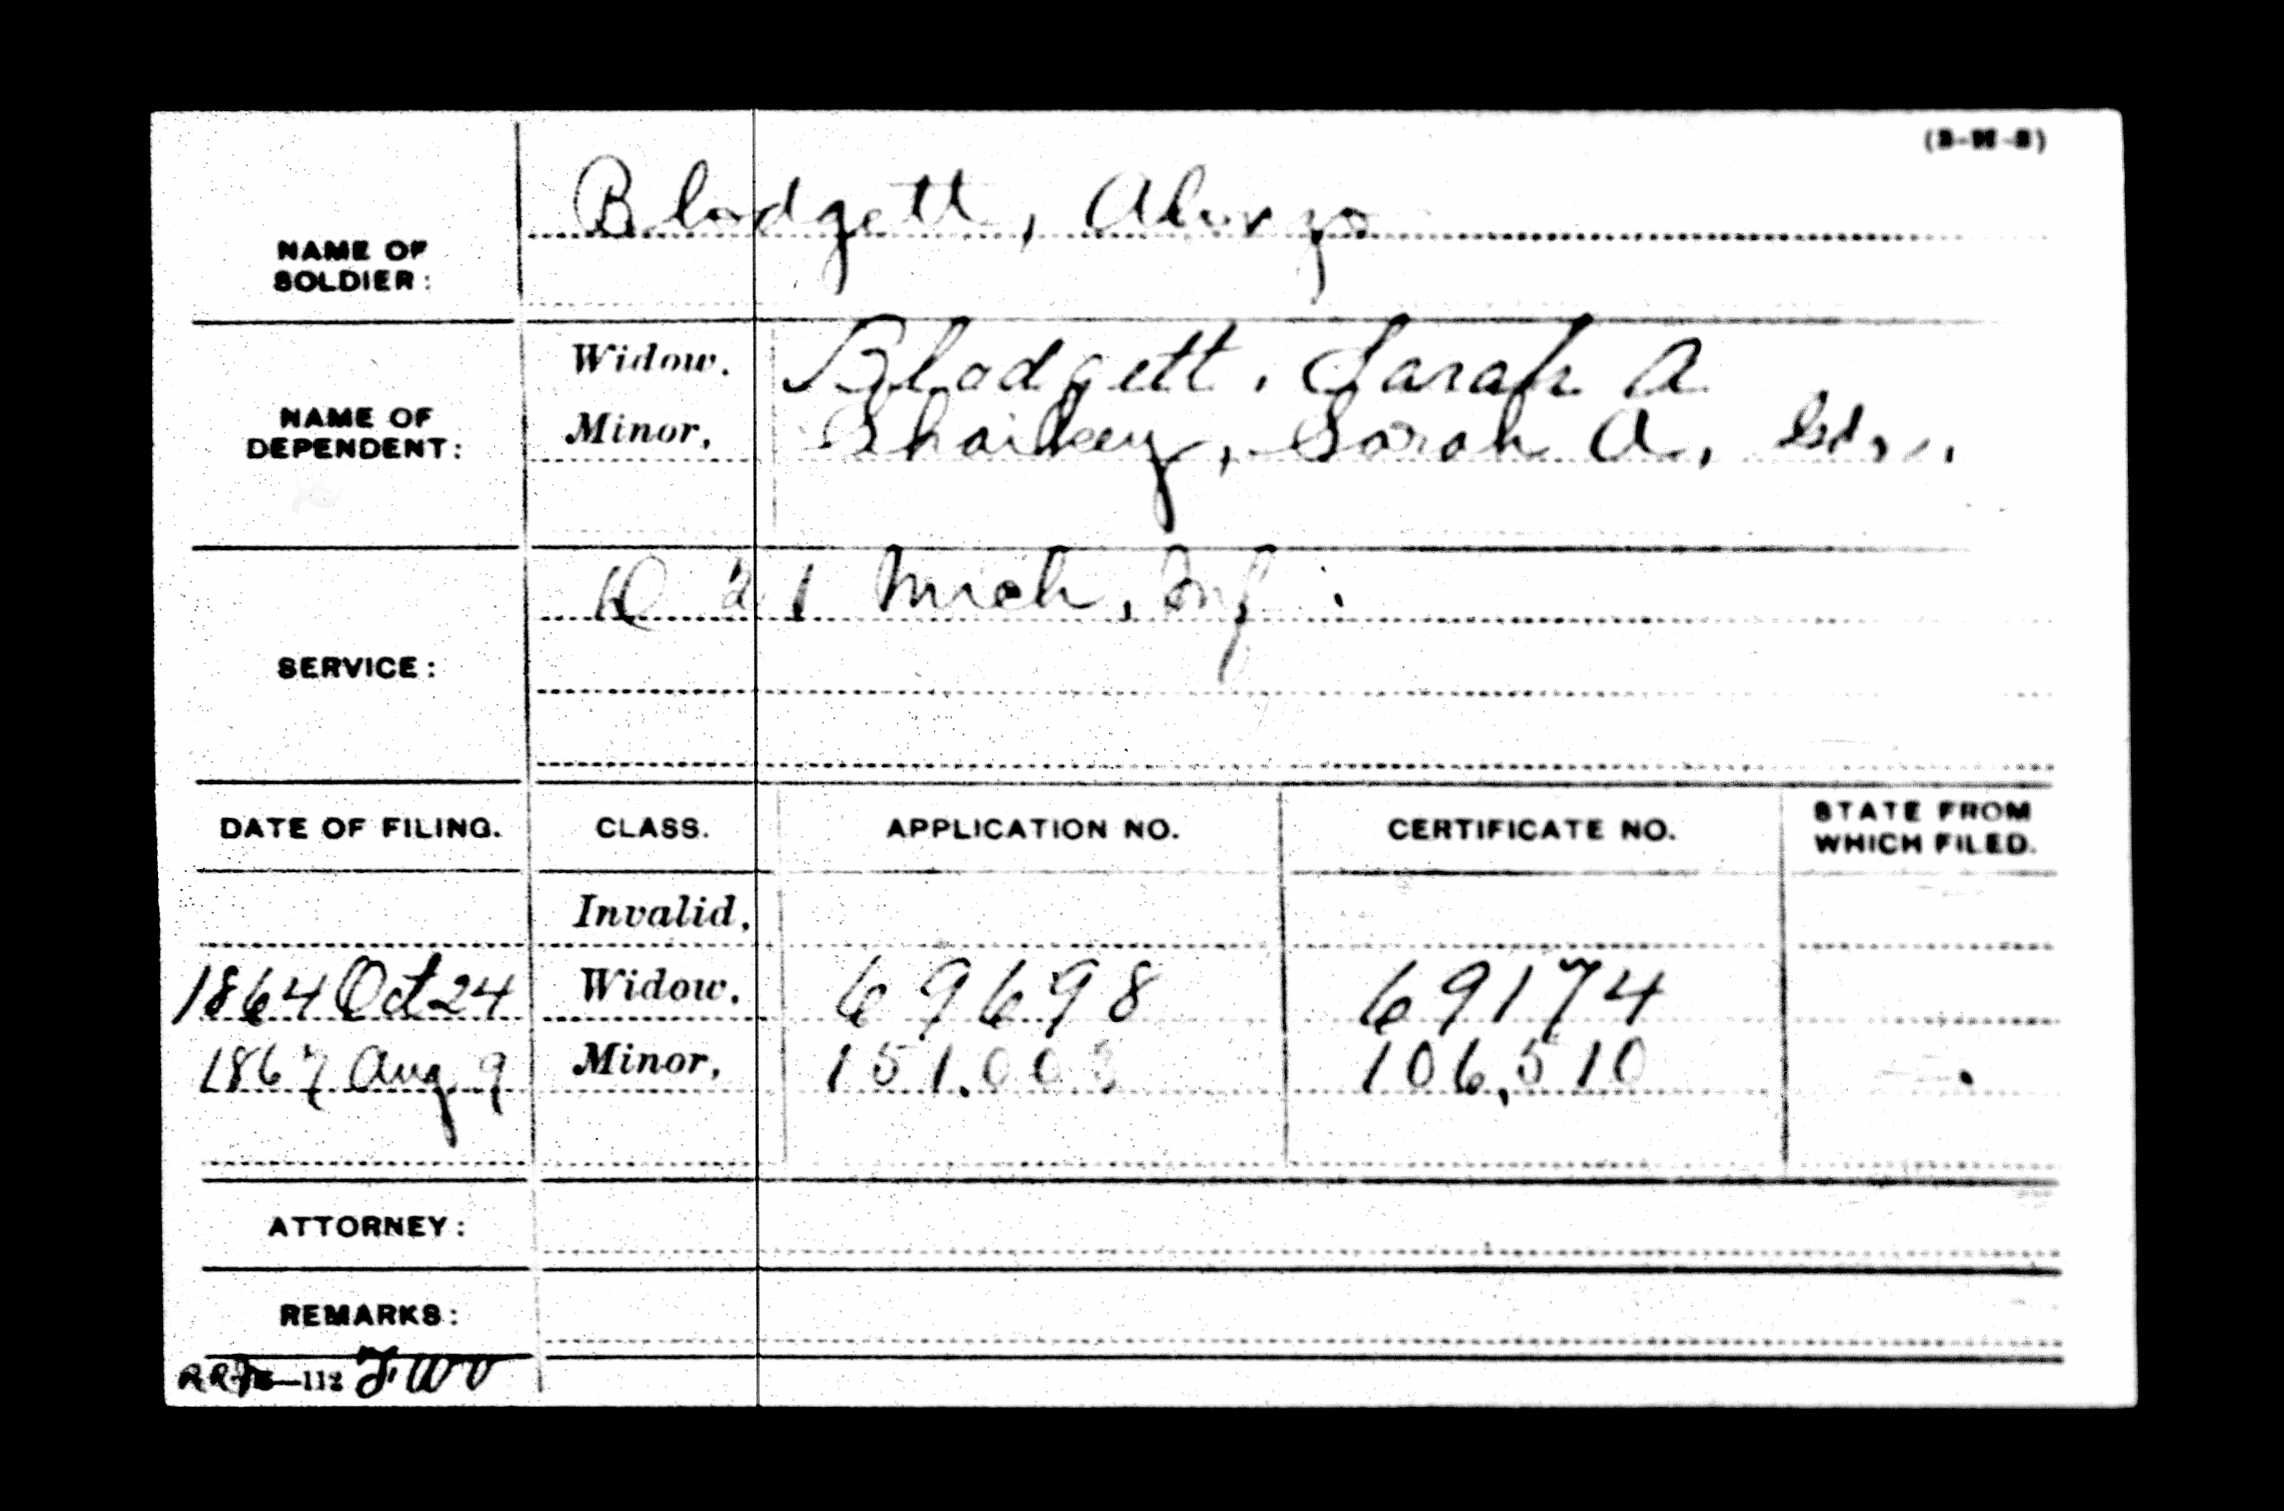 (3-W-3)
Blodgett, Alonzo
NAME OF
SOLDIER:
Widow. Blodgett, Sarah A
NAME OF
DEPENDENT:
Minor, Sarah A, Gdn.
D 21 Mich, Inf.
SERVICE:
DATE OF FILING. CLASS. APPLICATION NO. CERTIFICATE NO. STATE FROM
WHICH FILED.
Invalid,
1864 Oct 24 Widow. 69698 69174
1867 Aug 9 Minor, 151.003 106,510
ATTORNEY:
REMARKS:
—112